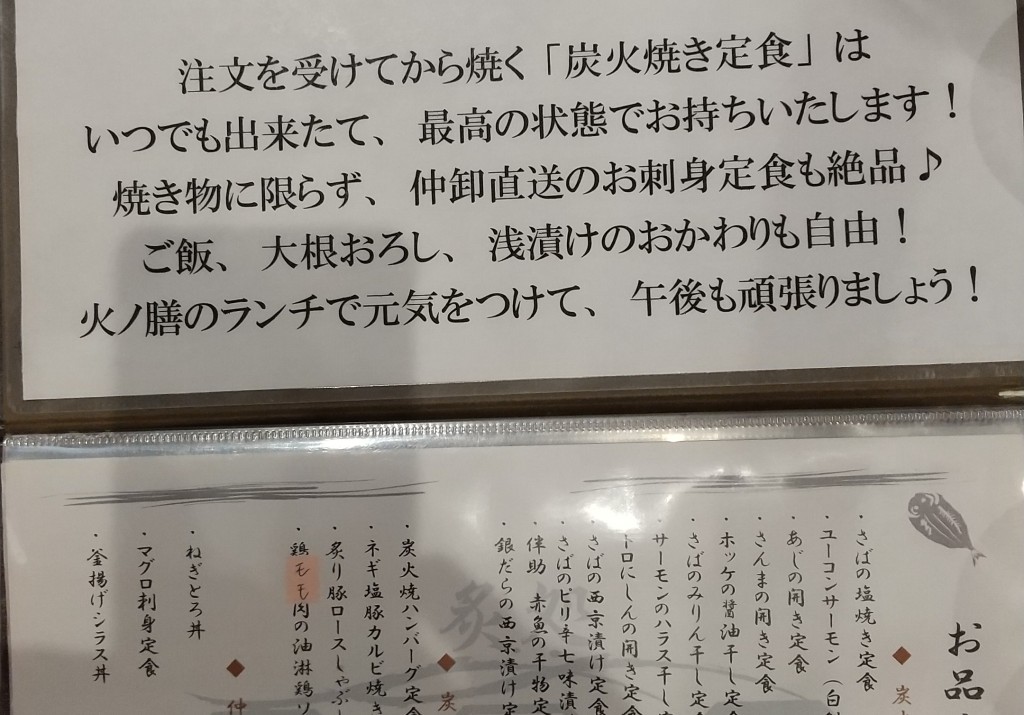 注文を受けてから焼く「炭火焼き定食」は
いつでも出来たて、最高の状態でお持ちいたします！
焼き物に限らず、仲卸直送のお刺身定食も絶品♪
ご飯、大根おろし、浅漬けのおかわりも自由！
火ノ膳のランチで元気をつけて、午後も頑張りましょう！
お品
◆炭
・さばの塩焼き定食
・ユーコンサーモン（白鮭
・あじの開き定食
・さんまの開き定食
・ホッケの醤油干し定
・さばのみりん干し定
・サーモンのハラス干し
トロにしんの開き定
・さばの西京漬け定食
・さばのピリ辛七味漬
・伴助 赤魚の干物定
・銀だらの西京漬け
◆炭
・炭火焼ハンバーグ定
・ネギ塩豚カルビ焼き
・炙り豚ロースしゃぶ
・鶏モモ肉の油淋鶏ソ
◆仲
・ねぎとろ丼
・マグロ刺身定食
・釜揚げシラス丼
炙処